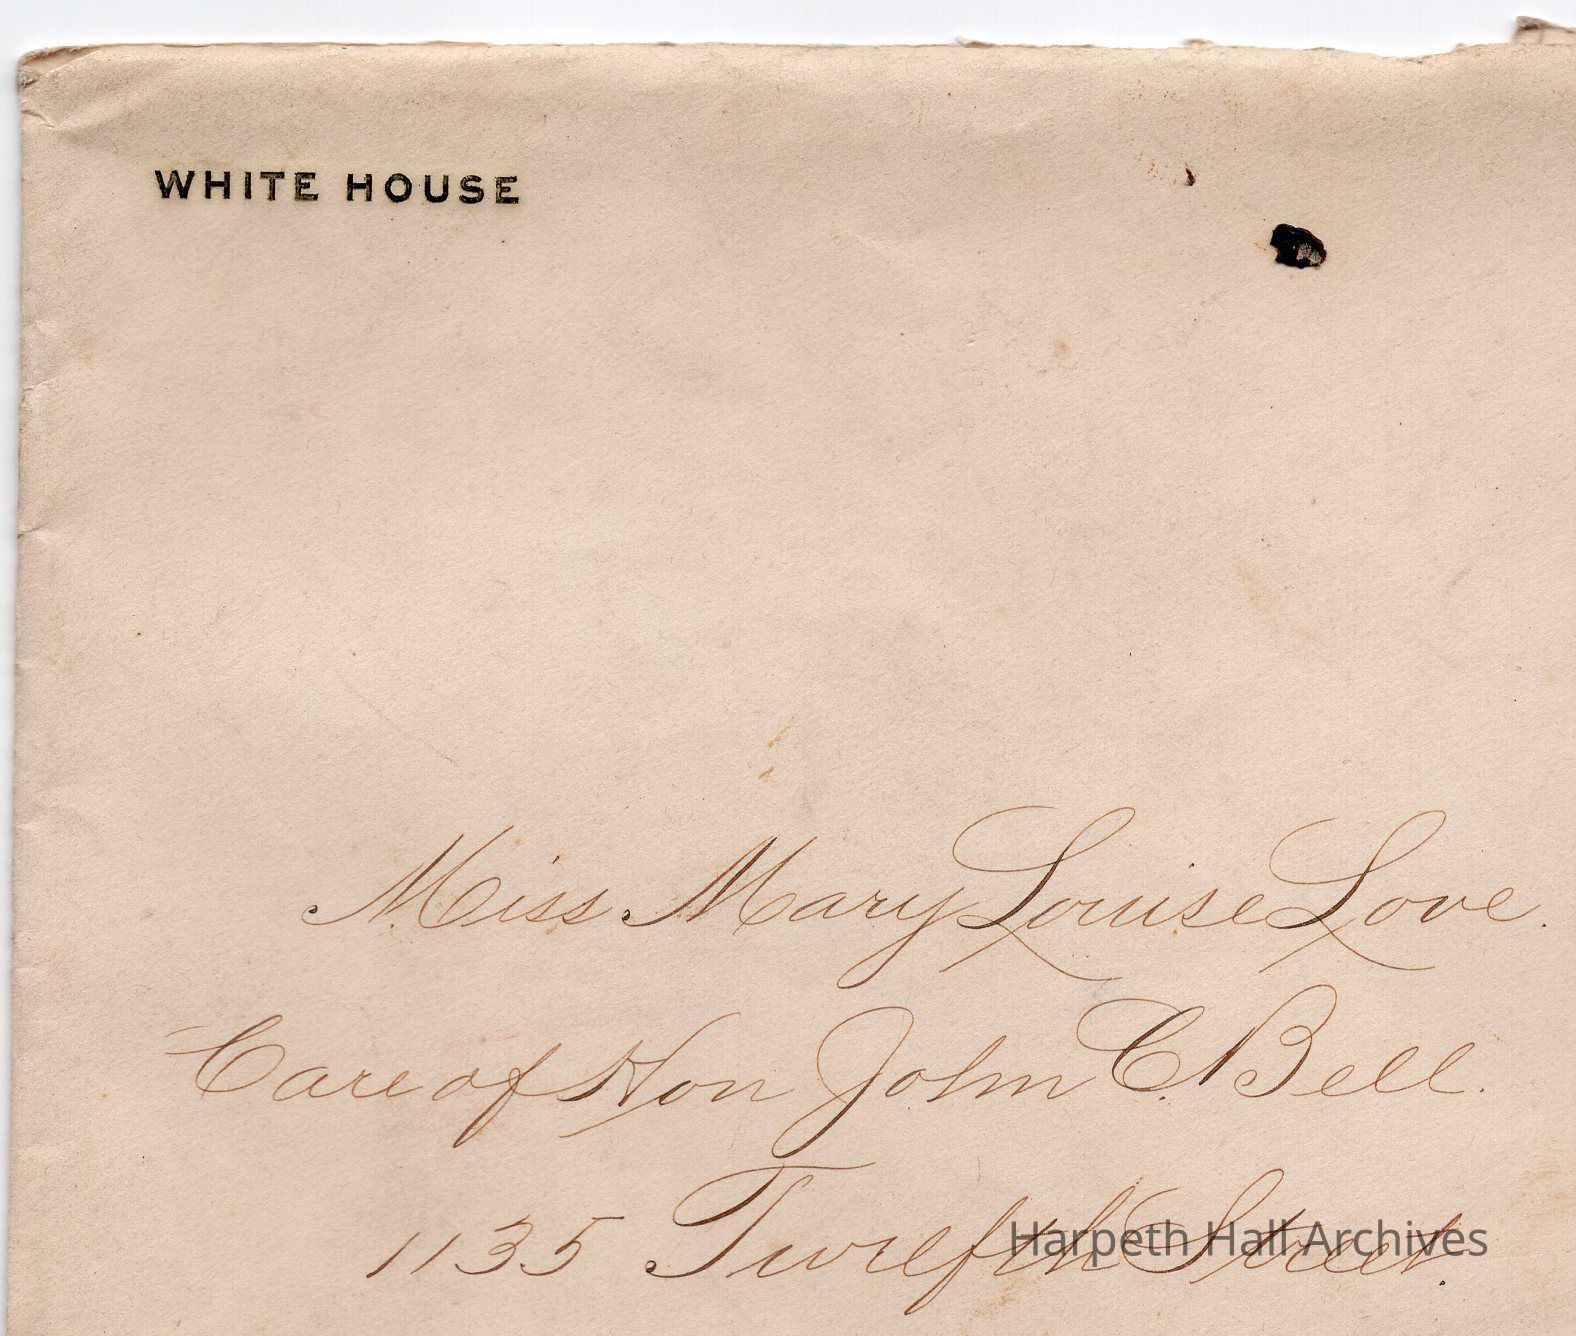 WHITE HOUSE
Miss Mary Louise Love.
Care of Hon John C. Bell.
1135 Twelfth Street.
Harpeth Hall Archives